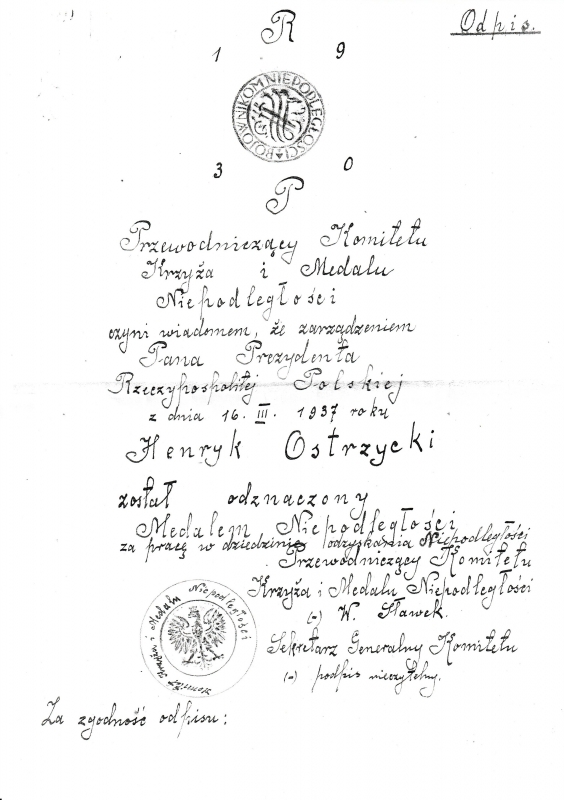 Odpis.
R
1 9
BOJOWNIKOM NIEPODLEGŁOŚCI
3 0
P
Przewodniczący Komitetu
Krzyża i Medalu
Niepodległości
czyni wiadomem, że zarządzeniem
Pana Prezydenta
Rzeczypospolitej Polskiej
z dnia 16. III. 1937 roku
Henryk Ostrzycki
został odznaczony
Medalem Niepodległości
za pracę w dziedzinie odzyskania Niepodległości
Przewodniczący Komitetu
Krzyża i Medalu Niepodległości
(-) W. Sławek.
Sekretarz Generalny Komitetu
(-) podpis nieczytelny.
Komitet Krzyża i Medalu Niepodległości
Za zgodność odpisu: